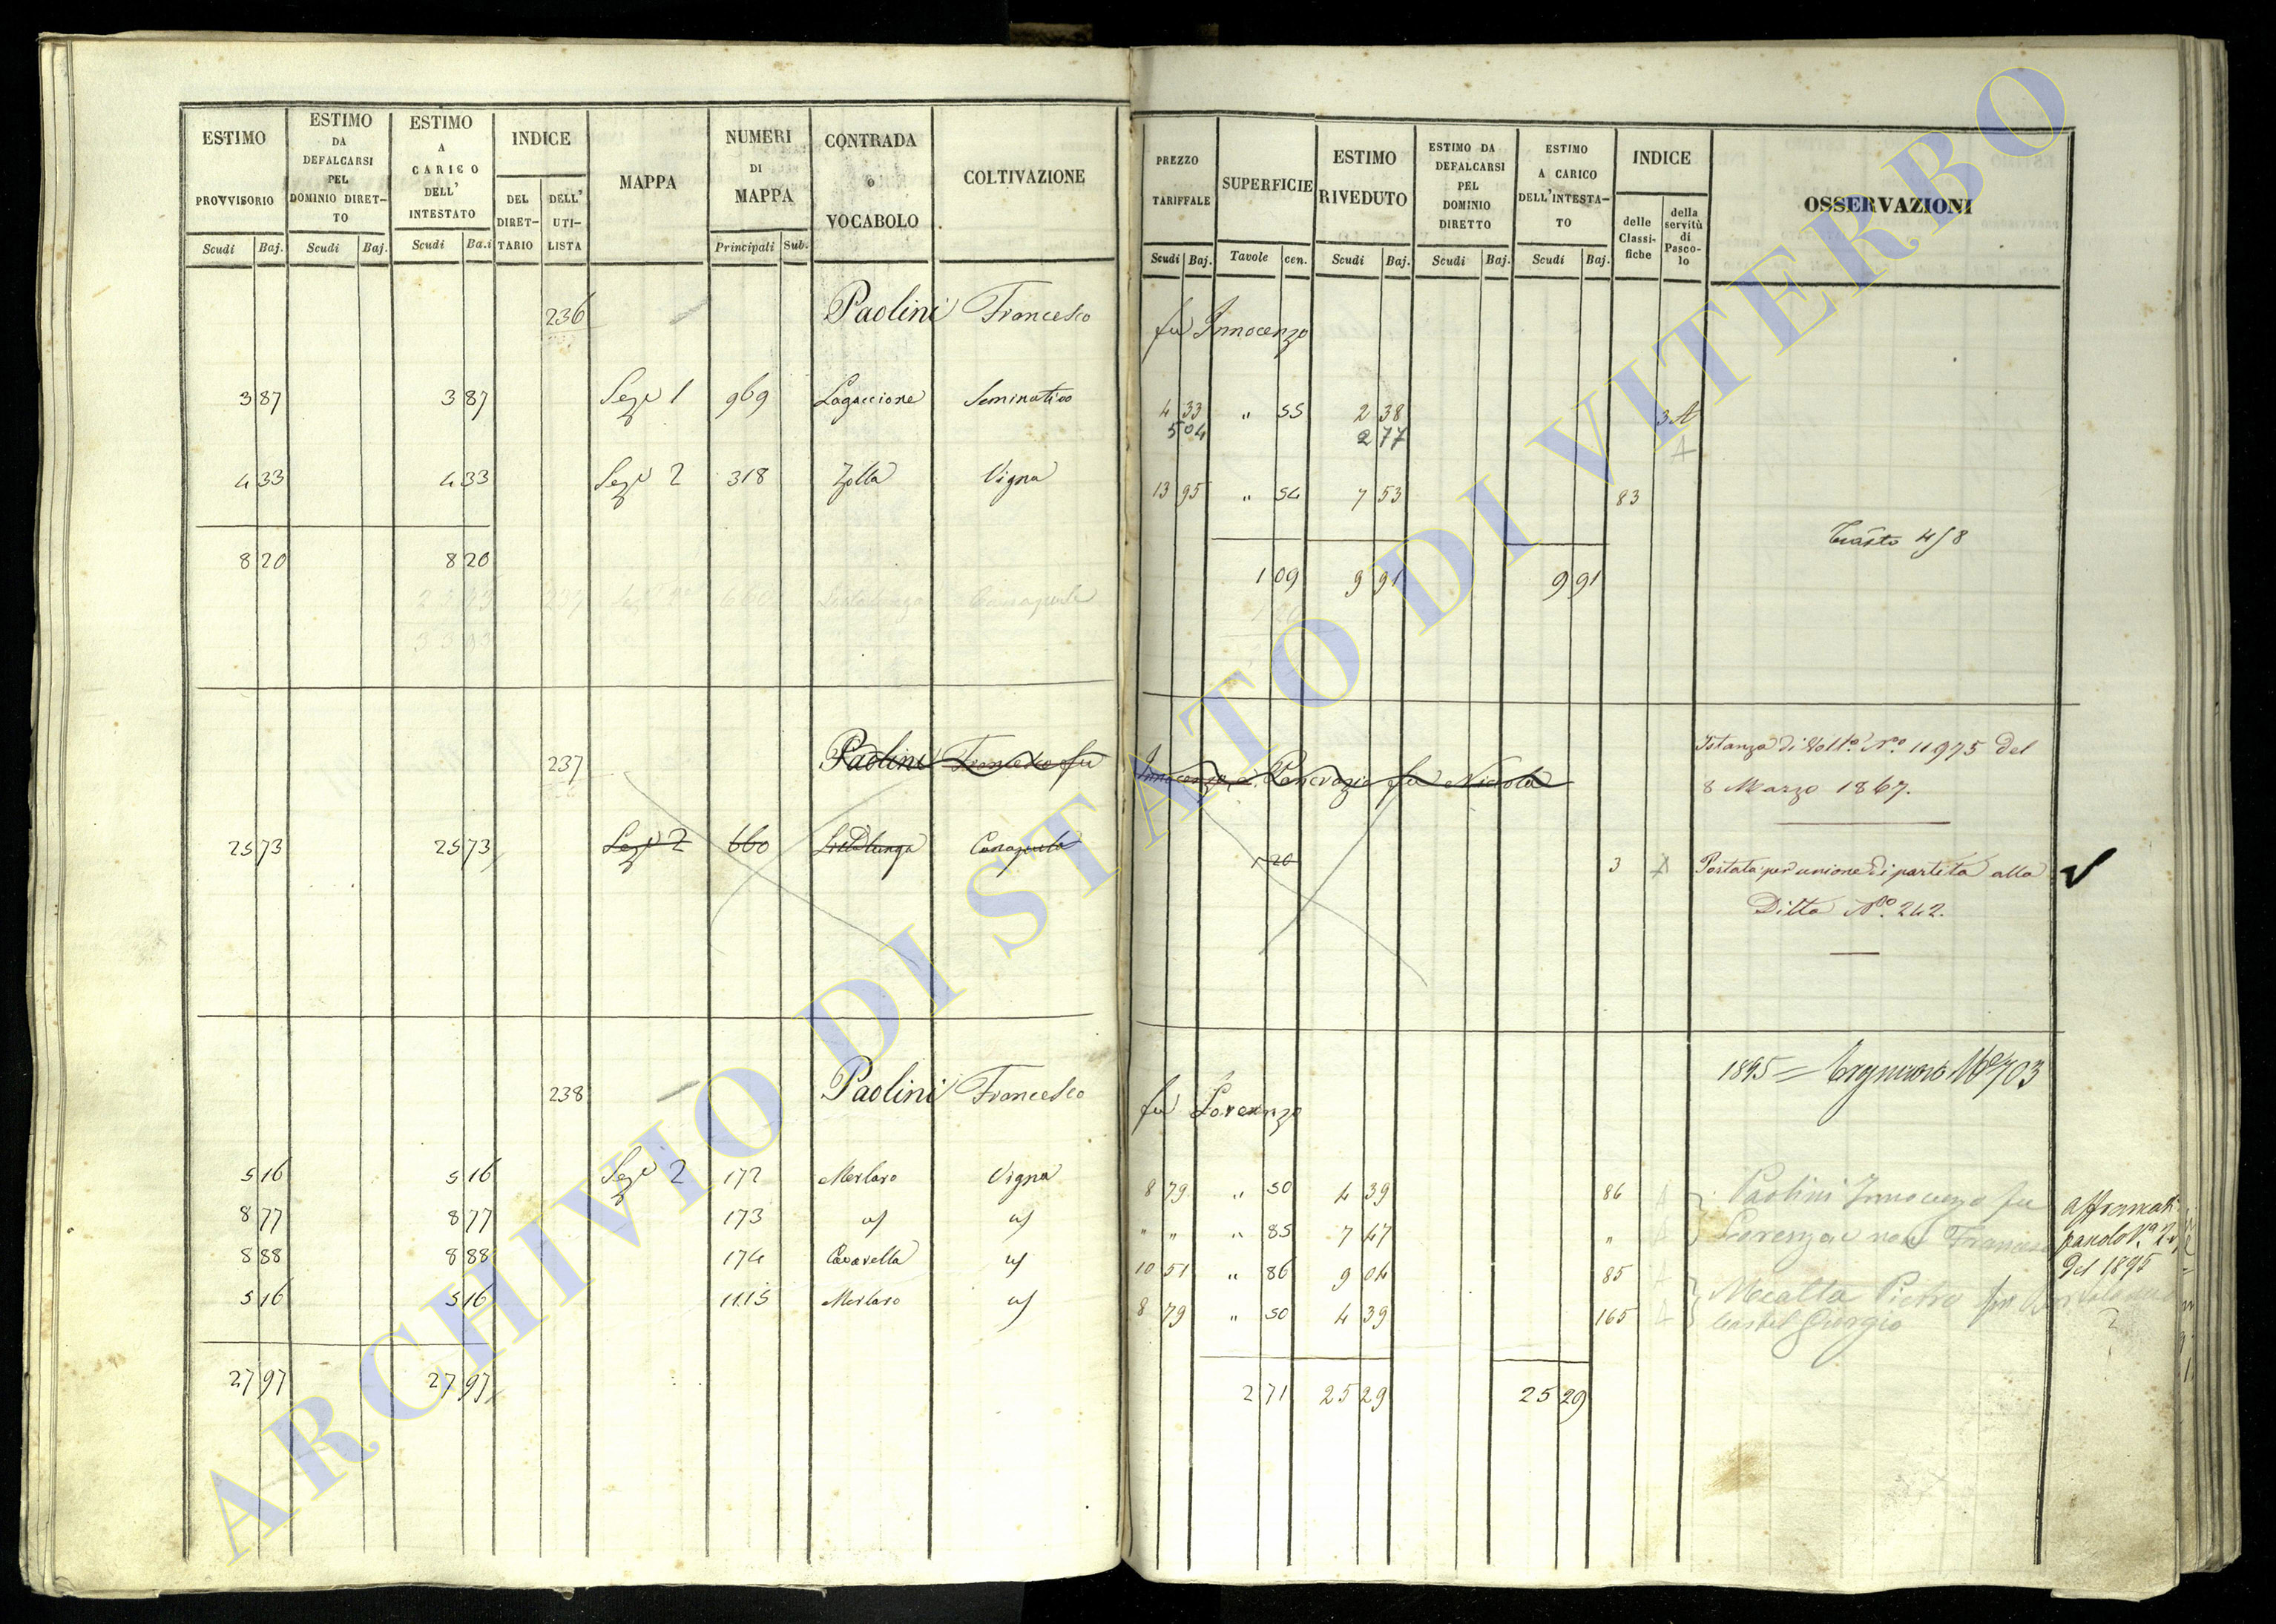 ESTIMO PROVVISORIO Scudi Baj.
ESTIMO DA DEFALCARSI PEL DOMINIO DIRET-TO Scudi Baj.
ESTIMO A CARICO DELL' INTESTATO Scudi Ba.i
INDICE DEL DIRET-TARIO DELL' UTI-LISTA
MAPPA
NUMERI DI MAPPA Principali Sub.
CONTRADA o VOCABOLO
COLTIVAZIONE
PREZZO TARIFFALE Scudi Baj.
SUPERFICIE Tavole cen.
ESTIMO RIVEDUTO Scudi Baj.
ESTIMO DA DEFALCARSI PEL DOMINIO DIRETTO Scudi Baj.
ESTIMO A CARICO DELL'INTESTA-TO Scudi Baj.
INDICE delle Classi-fiche della servitù di Pasco-lo
OSSERVAZIONI
236 Paolini Francesco fu Innocenzo
3 87 3 87 Seze 1 969 Lagaccione Seminativo 4 33 " 55 2 38 3 A
5 04 2 77 A
4 33 4 33 Seze 2 318 Zolla Vigna 13 95 " 54 7 53 83
8 20 8 20 1 09 9 91 9 91
237 Paolini Francesco fu Innocenzo e Pancrazio fu Nicola Istanza di Volta. No. 11975 del
8 Marzo 1867.
25 73 25 73 Seze 2 660 Canapule 1 20 3 Postata per unione di partita alla
Ditta No. 242.
1895 = No 703
238 Paolini Francesco fu Lorenzo
5 16 5 16 Seze 2 172 Merlaro Vigna 8 79 " 50 4 39 86 Paolini Innocenzo fu
8 77 8 77 173 " " " 85 7 47 " Lorenzo e non Francesco
8 88 8 88 174 Cavarella 10 51 " 86 9 04 85 del 1895
5 16 5 16 1115 Merlaro 8 79 " 50 4 39 165 Mealla Pietro fu
Castel Giorgio
27 97 27 97 2 71 25 29 25 29
ARCHIVIO DI STATO DI VITERBO